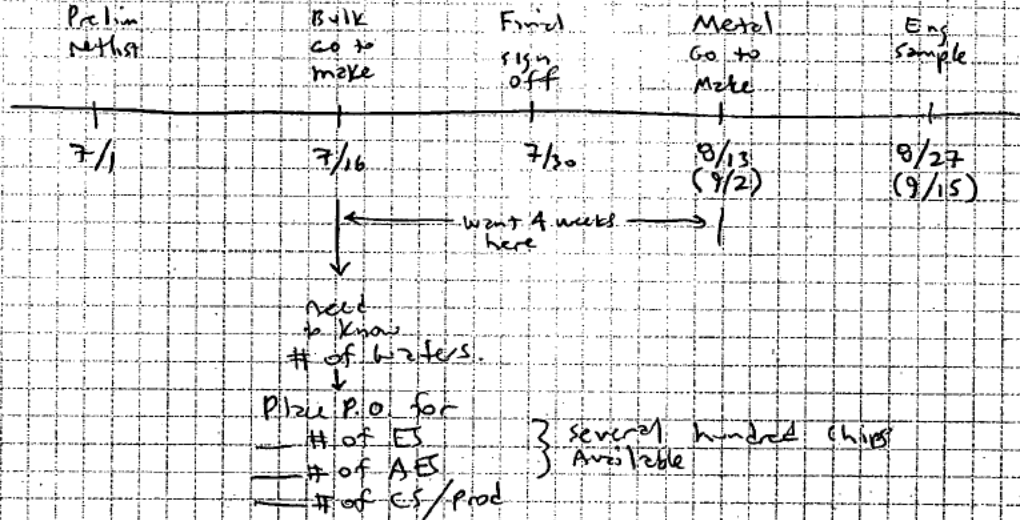 Prelim
Netlist
Bulk
Go to
make
Final
sign
off
Metal
Go to
Make
Eng
Sample
7/1
7/16
7/30
8/13
(9/2)
8/27
(9/15)
want 4 weeks
here
need
to know
# of wafers.
Place P.O. for
# of ES
# of AES
# of CS/Prod
several hundred chips
Available